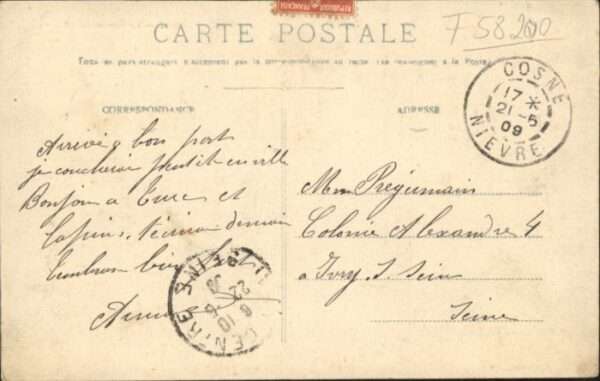 REPUBLIQUE FRANÇAISE
F 58200
CARTE POSTALE
Tous les pays étrangers n'acceptent pas la correspondance au recto (Se renseigner à la Poste)
CORRESPONDANCE
ADRESSE
COSNE
17 *
21-5
09
NIEVRE
Arrivée a bon port
je coucherai en ville
Bonjour a et
Lapin, demain
bien
22
Mme Préjumain
Colonie Alexandre 4
a Ivry S. Seine
Seine